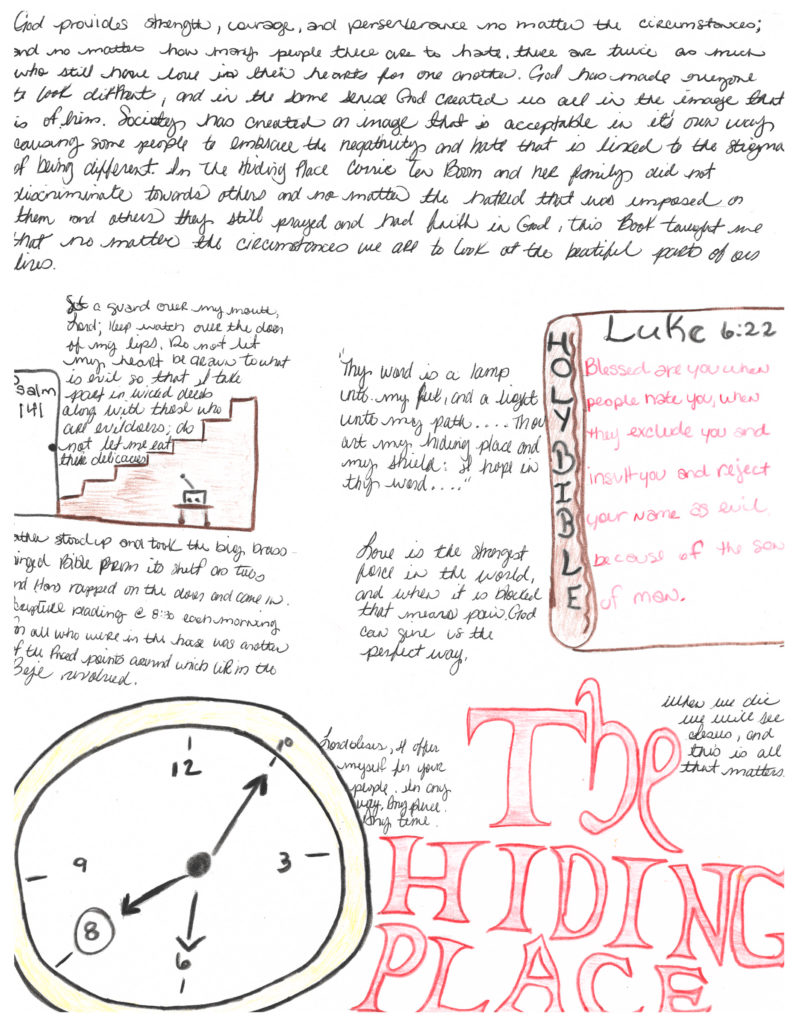 God provides strength, courage, and perserverance no matter the circumstances;
and no matter how many people there are to hate, there are twice as much
who still have love in their hearts for one another. God has made everyone
to look diffrent, and in the same sense God created us all in the image that
is of him. Society has created an image that is acceptable in it's own way
causing some people to embrace the negativity and hate that is linked to the stigma
of being different. In The Hiding Place Corrie Ten Boom and her family did not
discriminate towards others and no matter the hatred that was imposed on
them and others they still prayed and had faith in God, this Book taught me
that no matter the circumstances we are to look at the beatiful parts of our
lives.
Set a guard over my mouth,
Lord; Keep watch over the door
of my lips. Do not let
my heart be drawn to what
is evil so that I take
part in wicked deeds
along with those who
are evildoers; do
not let me eat
their delicacies
Psalm
141
"Thy word is a lamp
unto my feet, and a light
unto my path.... Thou
art my hiding place and
my shield: I hope in
thy word...."
HOLY BIBLE
Luke 6:22
Blessed are you when
people hate you, when
they exclude you and
insult you and reject
your name as evil
because of the son
of man.
ather stood up and took the big brass-
inged Bible from its shelf as Tubs
nd Hans rapped on the door and came in.
Scripture reading @ 8:30 each morning
for all who were in the house was another
of the fixed points around wich life in the
Beje revolved.
Love is the strongest
force in the world,
and when it is blocked
that means pain. God
can give us the
perfect way.
Lord Jesus, I offer
myself for your
people. In any
way. Any place.
Any time.
When we die
we will see
Jesus, and
this is all
that matters.
12
10
9
3
8
6
The
HIDING
PLACE